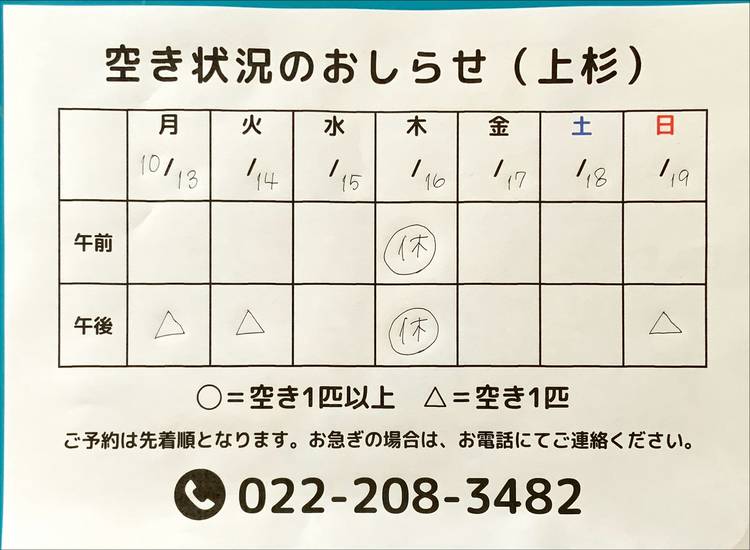 空き状況のおしらせ（上杉）
月 火 水 木 金 土 日
10/13 /14 /15 /16 /17 /18 /19
午前 休
午後 △ △ 休 △
○＝空き1匹以上 △＝空き1匹
ご予約は先着順となります。お急ぎの場合は、お電話にてご連絡ください。
022-208-3482